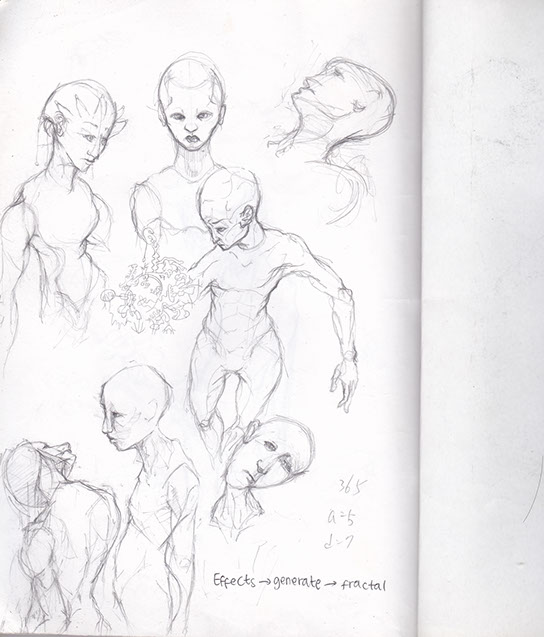 365
a=5
d=7
Effects → generate → fractal